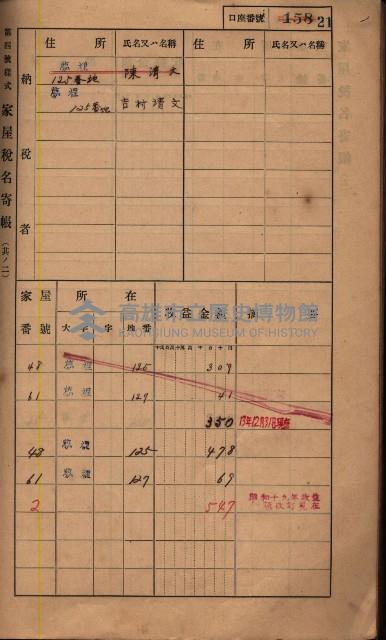 口座番號 158 21
第四號樣式 家屋稅名寄帳 (其ノ二)
納稅者
住所 氏名又ハ名稱 住所 氏名又ハ名稱
125番地 陳清文
125番地 吉村清文
高雄市立歷史博物館
KAOHSIUNG MUSEUM OF HISTORY
家屋番號 所在 大字 字 地番 收益金額 摘要
48 125 309
61 127 41
350 13年12月31日現在
48 125 478
61 127 69
2 547 昭和十九年